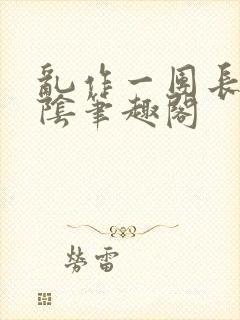 亂作一團長
陰筆趣閣
勞雷